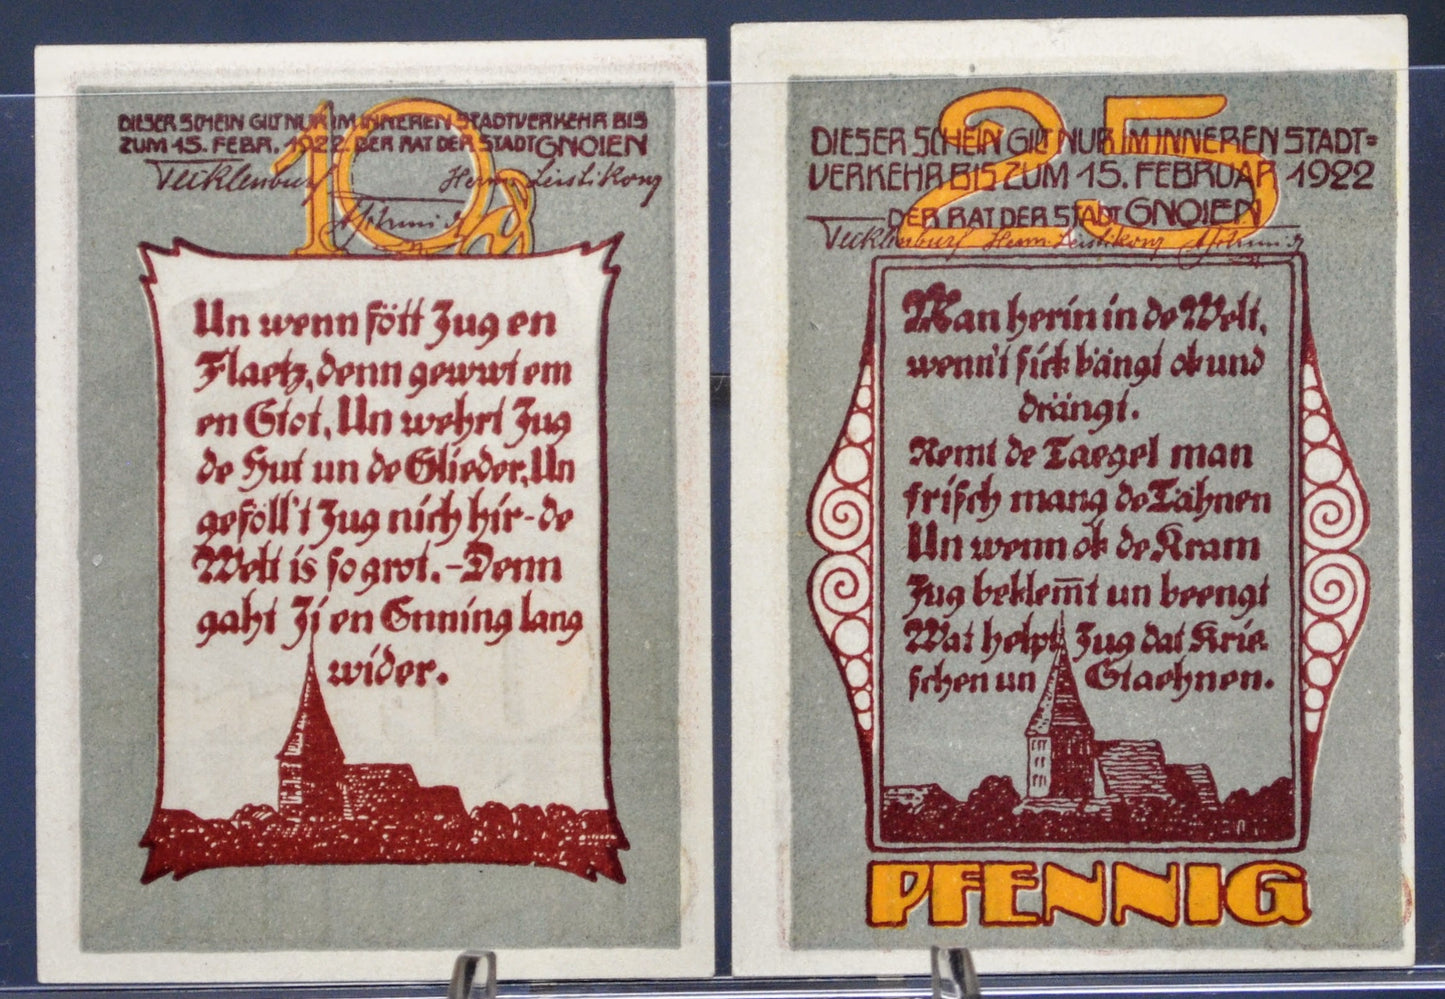 10 ₰
DIESER SCHEIN GILT NUR IM INNEREN STADTVERKEHR BIS
ZUM 15. FEBR. 1922. DER RAT DER STADT GNOIEN
Tecklenburg Herm. Leistikow
Un wenn fött Jug en
Flaetz, denn gewwt em
en Stot, Un wehrt Jug
de Hut un de Glieder, Un
geföll't Jug nich hir-de
Welt is so grot.-Denn
gaht Ji en Enning lang
wider.
25
DIESER SCHEIN GILT NUR IM INNEREN STADT=
VERKEHR BIS ZUM 15. FEBRUAR 1922
DER RAT DER STADT GNOIEN
Tecklenburg Herm. Leistikow
Man herin in de Welt,
wenn't sick bängt ok und
drängt.
Nemt de Taegel man
frisch mang de Tähnen
Un wenn ok de Kram
Jug beklem̅t un beengt
Wat helpt Jug dat Krie-
schen un Staehnen.
PFENNIG